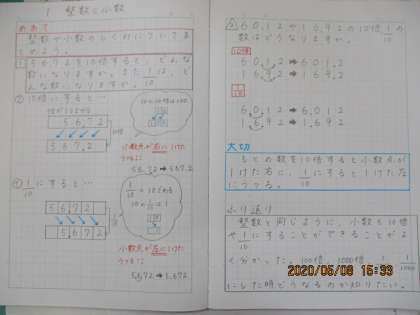 1 整数と小数
めあて
整数や小数のしくみについてまとめよう。
① 56.72を10倍すると、どんな
数になりますか。また1/10は、ど
んな数になりますか。
10倍にすると…
56.72
10倍
567.2
小数点が右に1けた
うつる!
56.72→567.2
1/10にすると…
56.72
5.672
小数点が左に1けた
うつる!
56.72→5.672
60.12や16.92の10倍、1/10の
数はどうなりますか。
10倍
60.12→601.2
16.92→169.2
1/10
60.12→6.012
16.92→1.692
大切
もとの数を10倍すると小数点が
1けた右に、1/10にすると1けた左
にうつる。
ふり返り
整数と同じように、小数も10倍
や1/10にすることができることがよ
く分かった。100倍、1000倍、
にした時どうなるのか知りたい。
2020/05/08 15:33